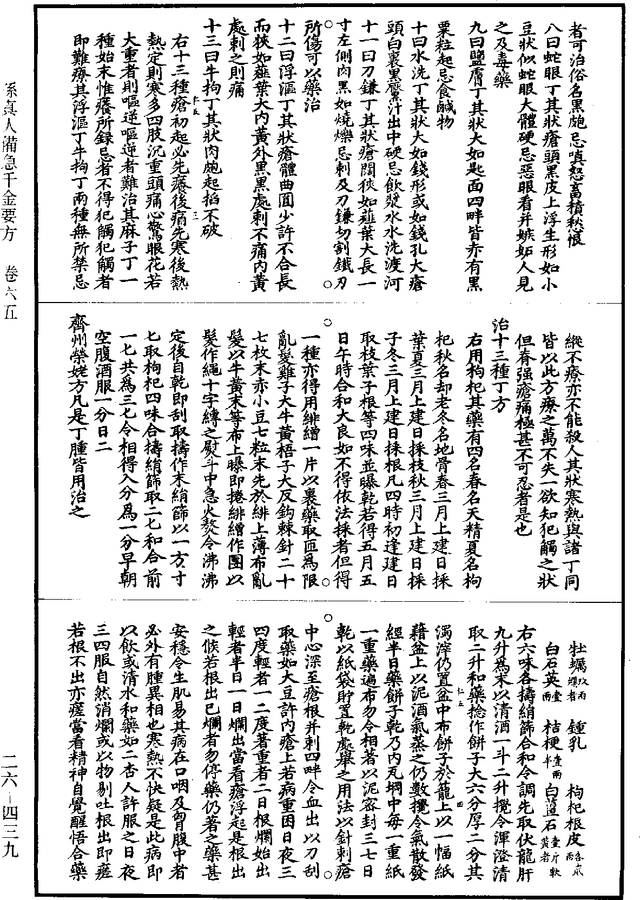 者可治俗名黑皰忌嗔怒畜積愁恨
八曰蛇眼丁其狀瘡頭黑皮上浮生形如小
豆狀似蛇眼大體硬忌惡眼看并嫉妬人見
之及毒藥
九曰鹽膚丁其狀大如匙面四畔皆赤有黑
粟粒起忌食鹹物
十曰水洗丁其狀大如錢形或如錢孔大瘡
頭白裏黑靨汁出中硬忌飲漿水水洗渡河
十一曰刀鎌丁其狀瘡闊狹如薤葉大長一
寸左側肉黑如燒爍忌刺及刀鎌切割鐵刃
所傷可以藥治
十二曰浮漚丁其狀瘡體曲圓少許不合長
而狹如薤葉大內黃外黑黑處刺不痛內黃
處刺之則痛
十三曰牛拘丁其狀肉皰起掐不破
右十三種瘡初起必先癢後痛先寒後熱
熱定則寒多四肢沉重頭痛心驚眼花若
大重者則嘔逆嘔逆者難治其麻子丁一
種始末惟癢所錄忌者不得犯觸犯觸者
即難療其浮漚丁牛拘丁兩種無所禁忌
縱不療亦不能殺人其狀寒熱與諸丁同
皆以此方療之萬不失一欲知犯觸之狀
但脊强瘡痛極甚不可忍者是也
治十三種丁方
右用枸杞其藥有四名春名天精夏名枸
杞秋名却老冬名地骨春三月上建日採
葉夏三月上建日採枝秋三月上建日採
子冬三月上建日採根凡四時初逢建日
取枝葉子根等四味並曝乾若得五月五
日午時合和大良如不得依法採者但得
一種亦得用緋繒一片以裹藥取匝為限
亂髮雞子大牛黃梧子大反鉤棘針二十
七枚末赤小豆七粒末先於緋上薄布亂
髮以牛黃末等布上曝即捲緋繒作團以
髮作繩十字縛之熨斗中急火熬令沸沸
定後自乾即刮取擣作末絹篩以一方寸
七取枸杞四味合擣絹篩取二七和合前
一七共為三七令相得入分為一分早朝
空腹酒服一分日二
齊州榮姥方凡是丁腫皆用治之
牡蠣 鍾乳 枸杞根皮
白石英 桔梗 白薑石
右六味各擣絹篩合和令調先取伏龍肝
九升為末以清酒一斗二升攪令渾澄清
取二升和藥捻作餅子大六分厚二分其
濁滓仍置盆中布餅子於籠上以一幅紙
藉盆上以泥酒氣蒸之仍數攪令氣散發
經半日藥餅子乾乃內瓦坩中每一重紙
一重藥遍布勿令相著以泥密封三七日
乾以紙袋貯置乾處舉之用法以針刺瘡
中心深至瘡根并刺四畔令血出以刀刮
取藥如大豆許內瘡上若病重困日夜三
四度輕者一二度著重者二日根爛始出
輕者半日一日爛出當看瘡浮起是根出
之候若根出已爛者勿停藥仍著之藥甚
安穩令生肌易其病在口咽及胷腹中者
必外有腫異相也寒熱不快疑是此病即
以飲或清水和藥如二杏人許服之日夜
三四服自然消爛或以物剔吐根出即瘥
若根不出亦瘥當看精神自覺醒悟合藥
孫真人備急千金要方 卷六五
二六-四三九